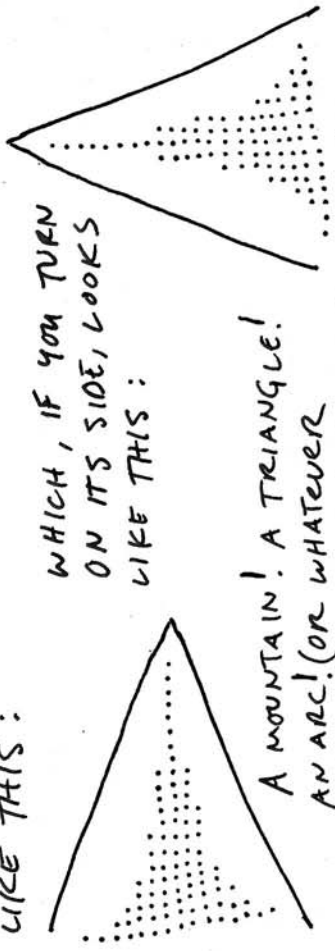 LIKE THIS:
WHICH, IF YOU TURN
ON ITS SIDE, LOOKS
LIKE THIS:
A MOUNTAIN! A TRIANGLE!
AN ARC! (OR WHATEVER